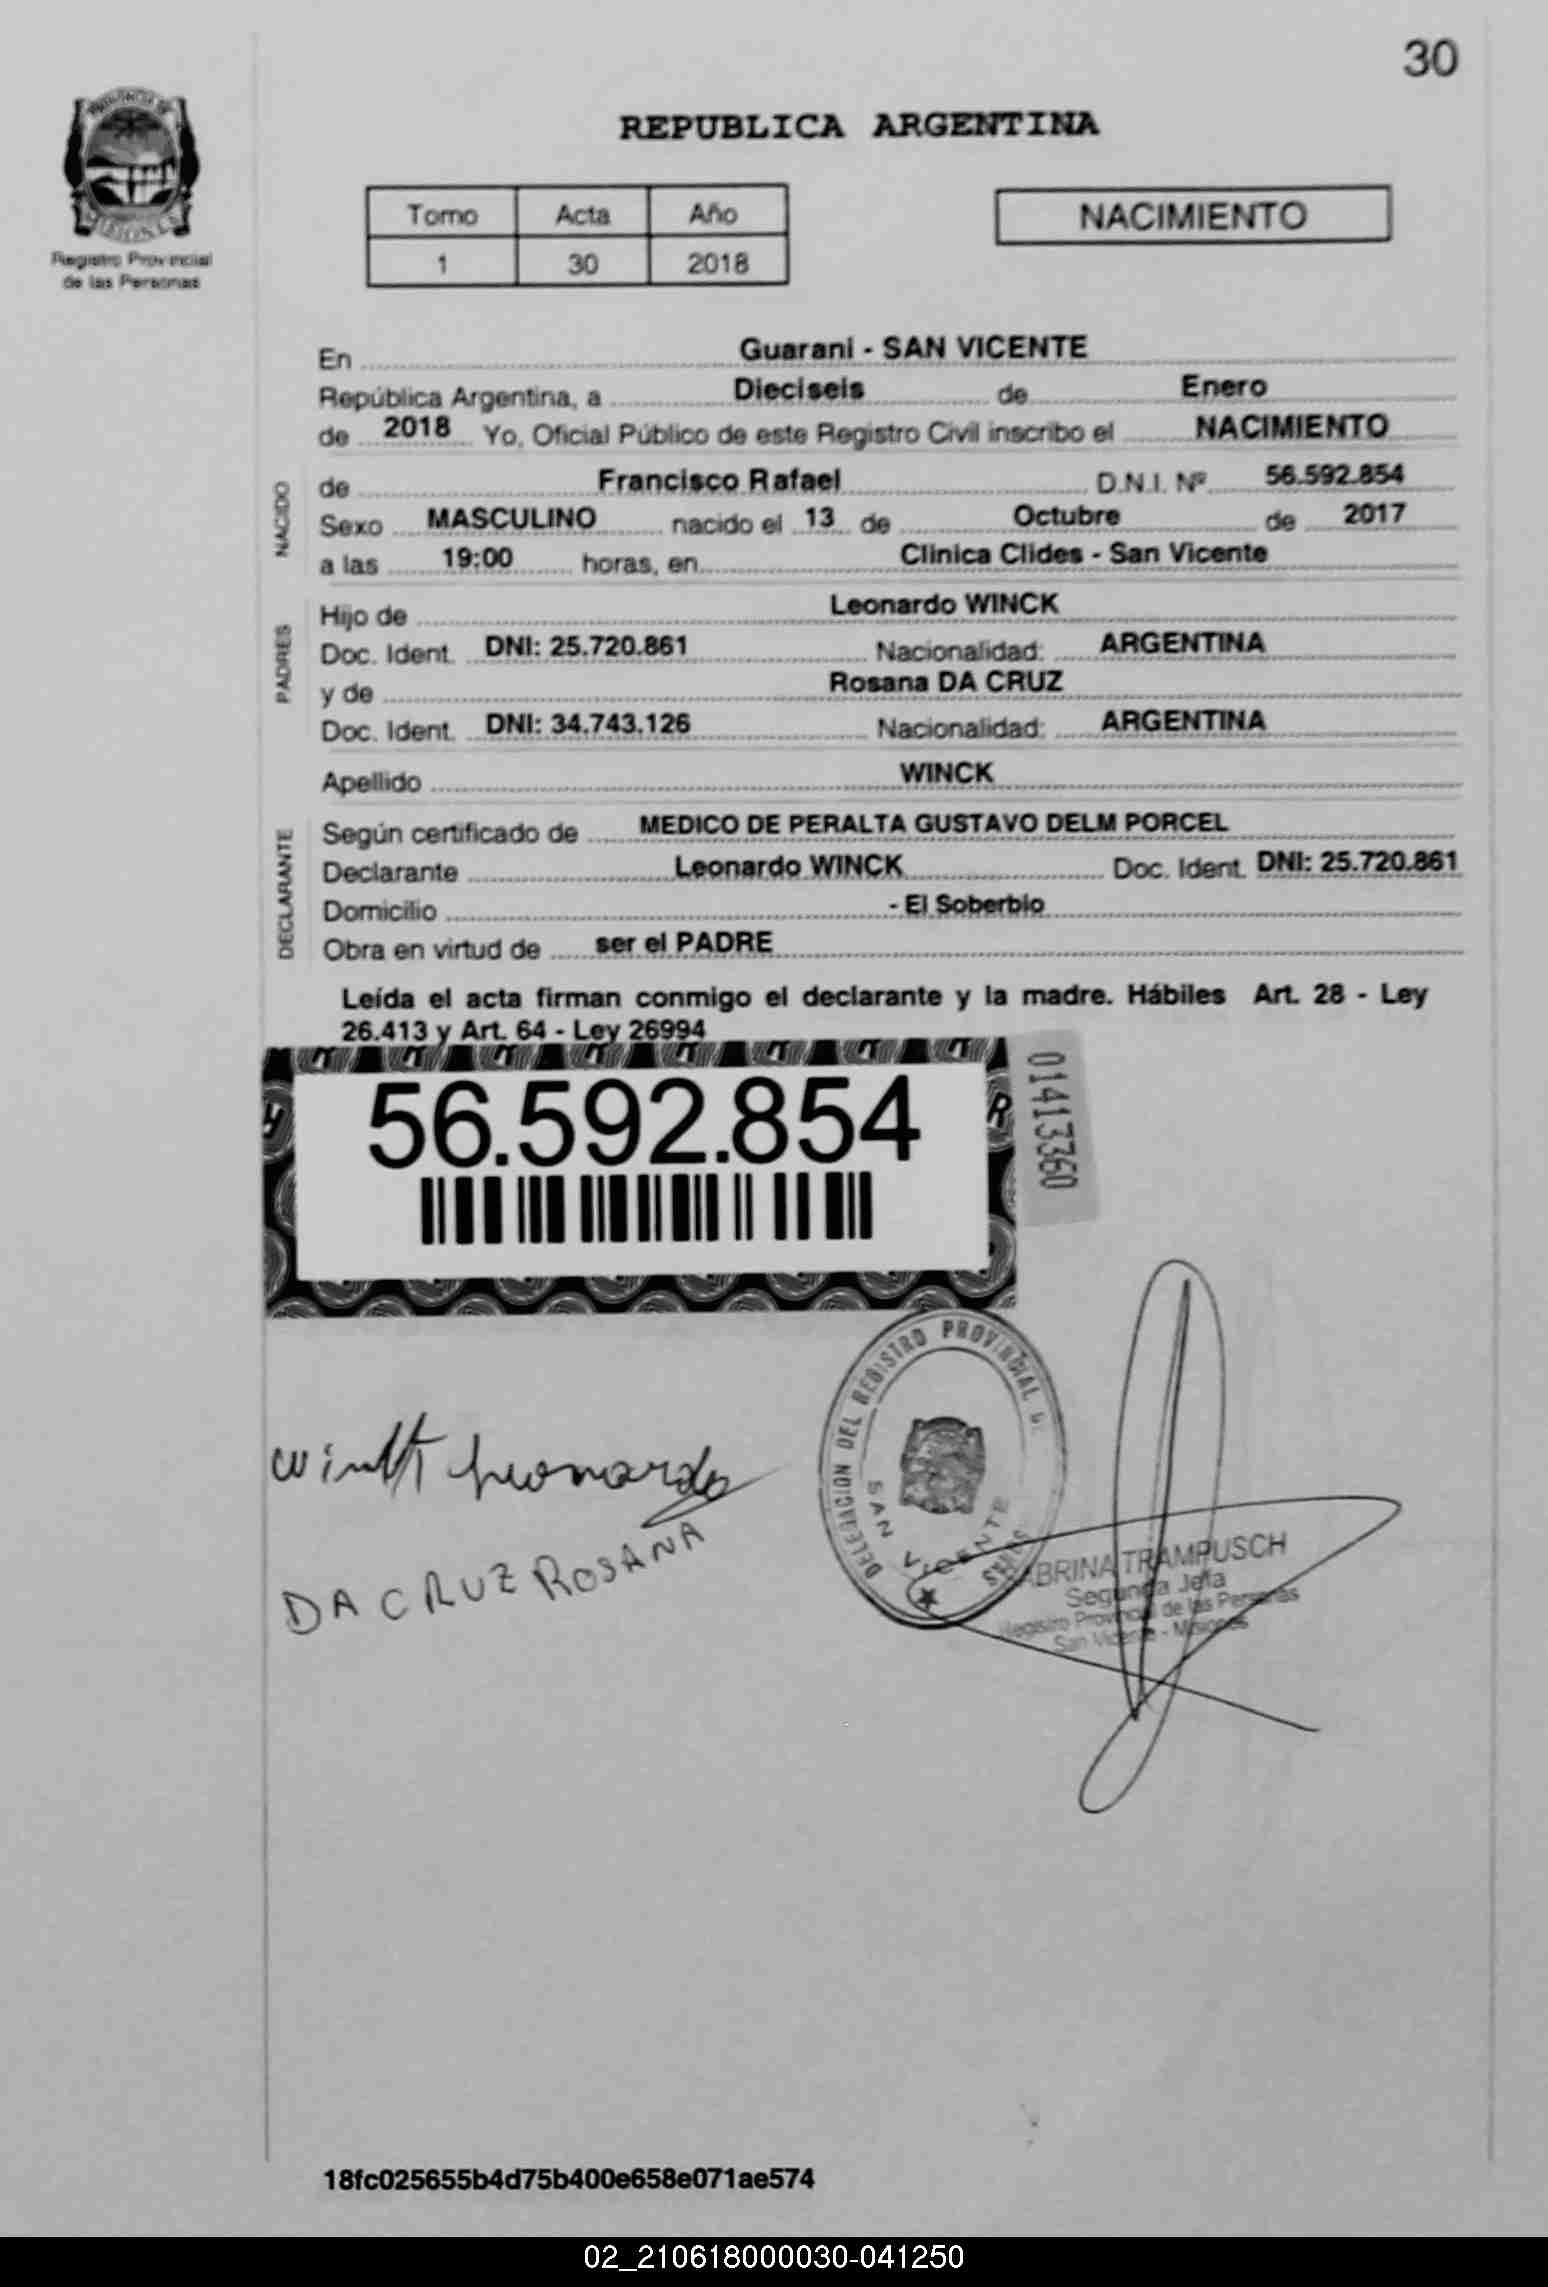 30
PROVINCIA DE
MISIONES
Registro Provincial
de las Personas
REPUBLICA ARGENTINA
Tomo Acta Año
1 30 2018
NACIMIENTO
En Guarani - SAN VICENTE
República Argentina, a Dieciseis de Enero
de 2018 Yo, Oficial Público de este Registro Civil inscribo el NACIMIENTO
NACIDO
de Francisco Rafael D.N.I. Nº 56.592.854
Sexo MASCULINO nacido el 13 de Octubre de 2017
a las 19:00 horas, en Clinica Clides - San Vicente
PADRES
Hijo de Leonardo WINCK
Doc. Ident. DNI: 25.720.861 Nacionalidad: ARGENTINA
y de Rosana DA CRUZ
Doc. Ident. DNI: 34.743.126 Nacionalidad: ARGENTINA
Apellido WINCK
DECLARANTE
Según certificado de MEDICO DE PERALTA GUSTAVO DELM PORCEL
Declarante Leonardo WINCK Doc. Ident. DNI: 25.720.861
Domicilio - El Soberbio
Obra en virtud de ser el PADRE
Leída el acta firman conmigo el declarante y la madre. Hábiles Art. 28 - Ley
26.413 y Art. 64 - Ley 26994
56.592.854
01413360
DELEGACION DEL REGISTRO PROVINCIAL
SAN VICENTE
Leonardo
DA CRUZ ROSANA
SABRINA TRAMPUSCH
Segunda Jefa
Registro Provincial de las Personas
San Vicente - Misiones
18fc025655b4d75b400e658e071ae574
02_210618000030-041250